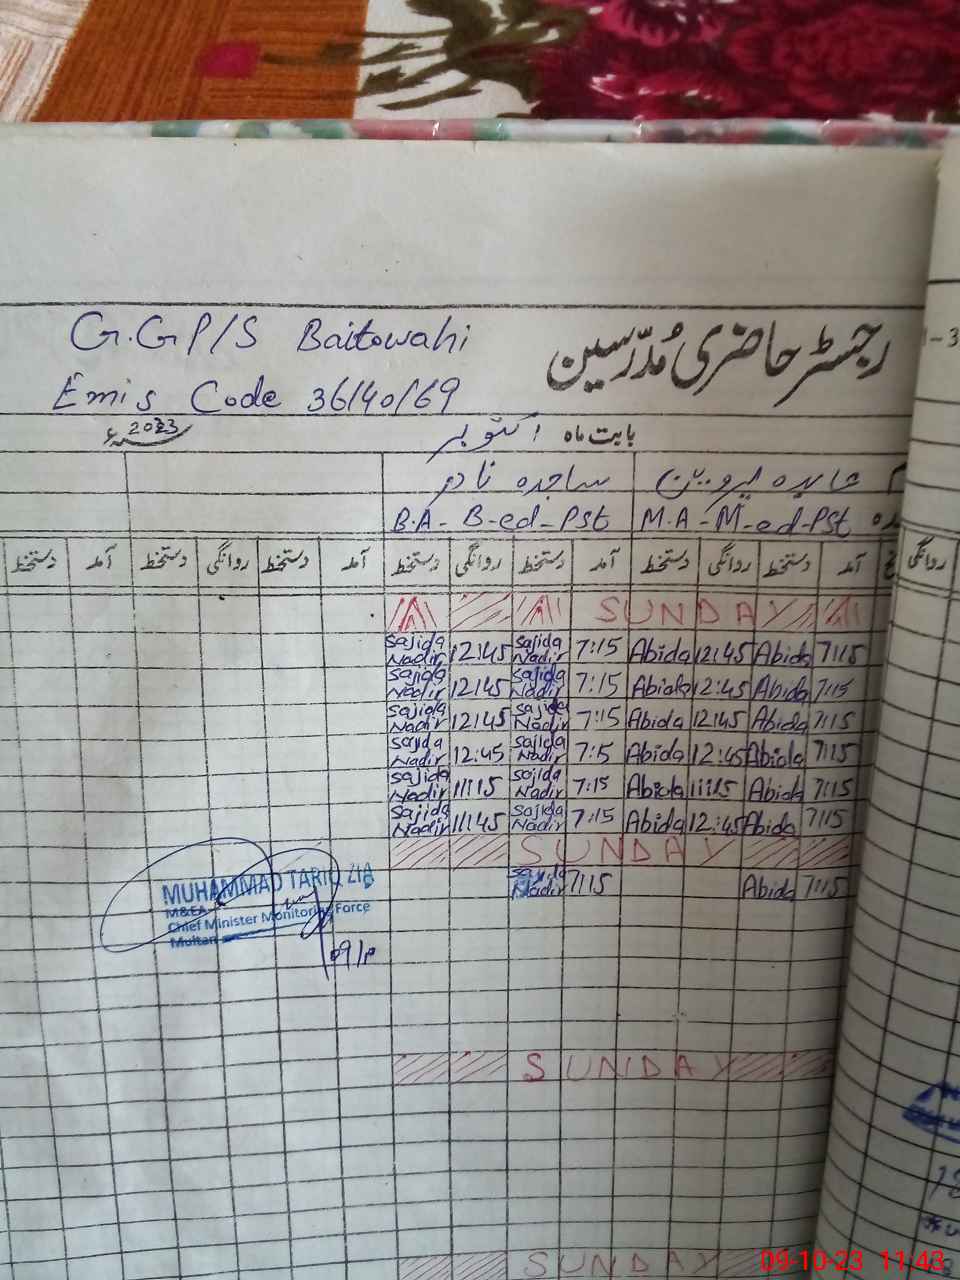 G.G P/S Baitowahi
رجسٹر حاضری مُدرّسین
Emis Code 36140169
بابت ماہ اکتوبر 2023ء
عابدہ پروین ساجدہ نادر
M.A-M-ed-PSt B.A-B-ed-PSt
آمد دستخط روانگی دستخط آمد دستخط روانگی دستخط آمد دستخط روانگی دستخط آمد دستخط
روانگی
SUNDAY
Sajida Nadir 12:45 Sajida Nadir 7:15 Abida 12:45 Abida 7:15
Sajida Nadir 12:45 Sajida Nadir 7:15 Abida 12:45 Abida 7:15
Sajida Nadir 12:45 Sajida Nadir 7:15 Abida 12:45 Abida 7:15
Sajida Nadir 12:45 Sajida Nadir 7:15 Abida 12:45 Abida 7:15
Sajida Nadir 11:15 Sajida Nadir 7:15 Abida 11:15 Abida 7:15
Sajida Nadir 11:45 Sajida Nadir 7:15 Abida 12:45 Abida 7:15
SUNDAY
Sajida Nadir 7:15 Abida 7:15
MUHAMMAD TARIQ ZIA
M&EA
Chief Minister Monitoring Force
Multan
SUNDAY
SUNDAY
09-10-23 11:43